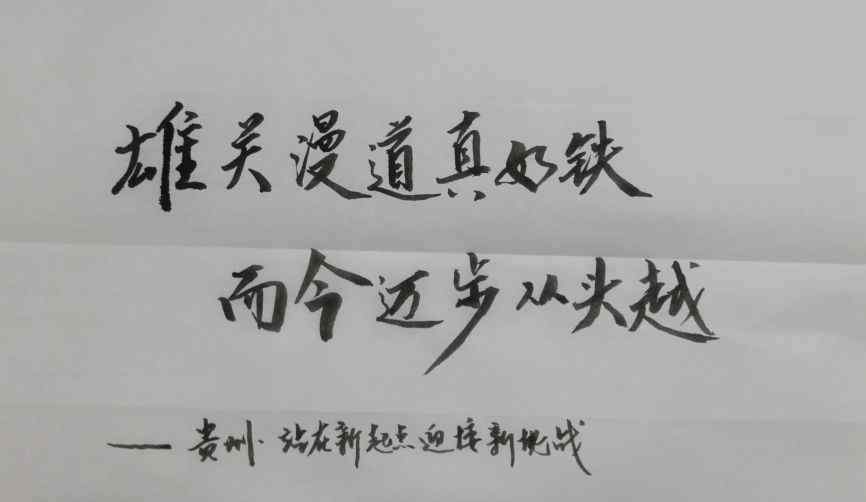 雄关漫道真如铁
而今迈步从头越
——贵州·站在新起点迎接新挑战